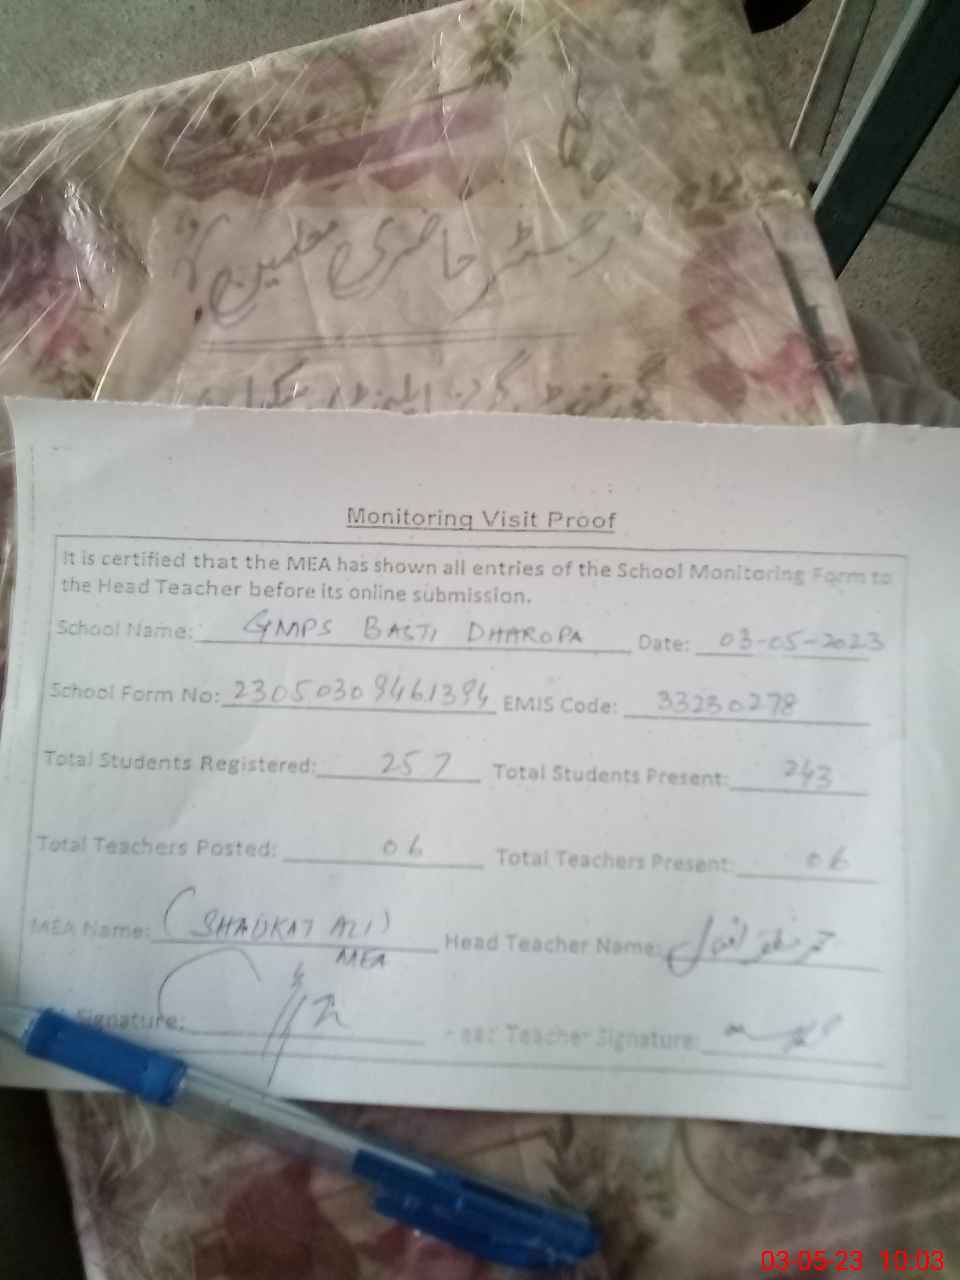 رجسٹر حاضری معلمین
گورنمنٹ گرلز ایلیمنٹری
Monitoring Visit Proof
It is certified that the MEA has shown all entries of the School Monitoring Form to
the Head Teacher before its online submission.
School Name: GMPS BASTI DHAROPA Date: 03-05-2023
School Form No: 23050309461394 EMIS Code: 33230278
Total Students Registered: 257 Total Students Present: 243
Total Teachers Posted: 06 Total Teachers Present: 06
MEA Name: (SHAUKAT ALI) Head Teacher Name:
MEA
Signature: Head Teacher Signature:
03-05-23 10:03